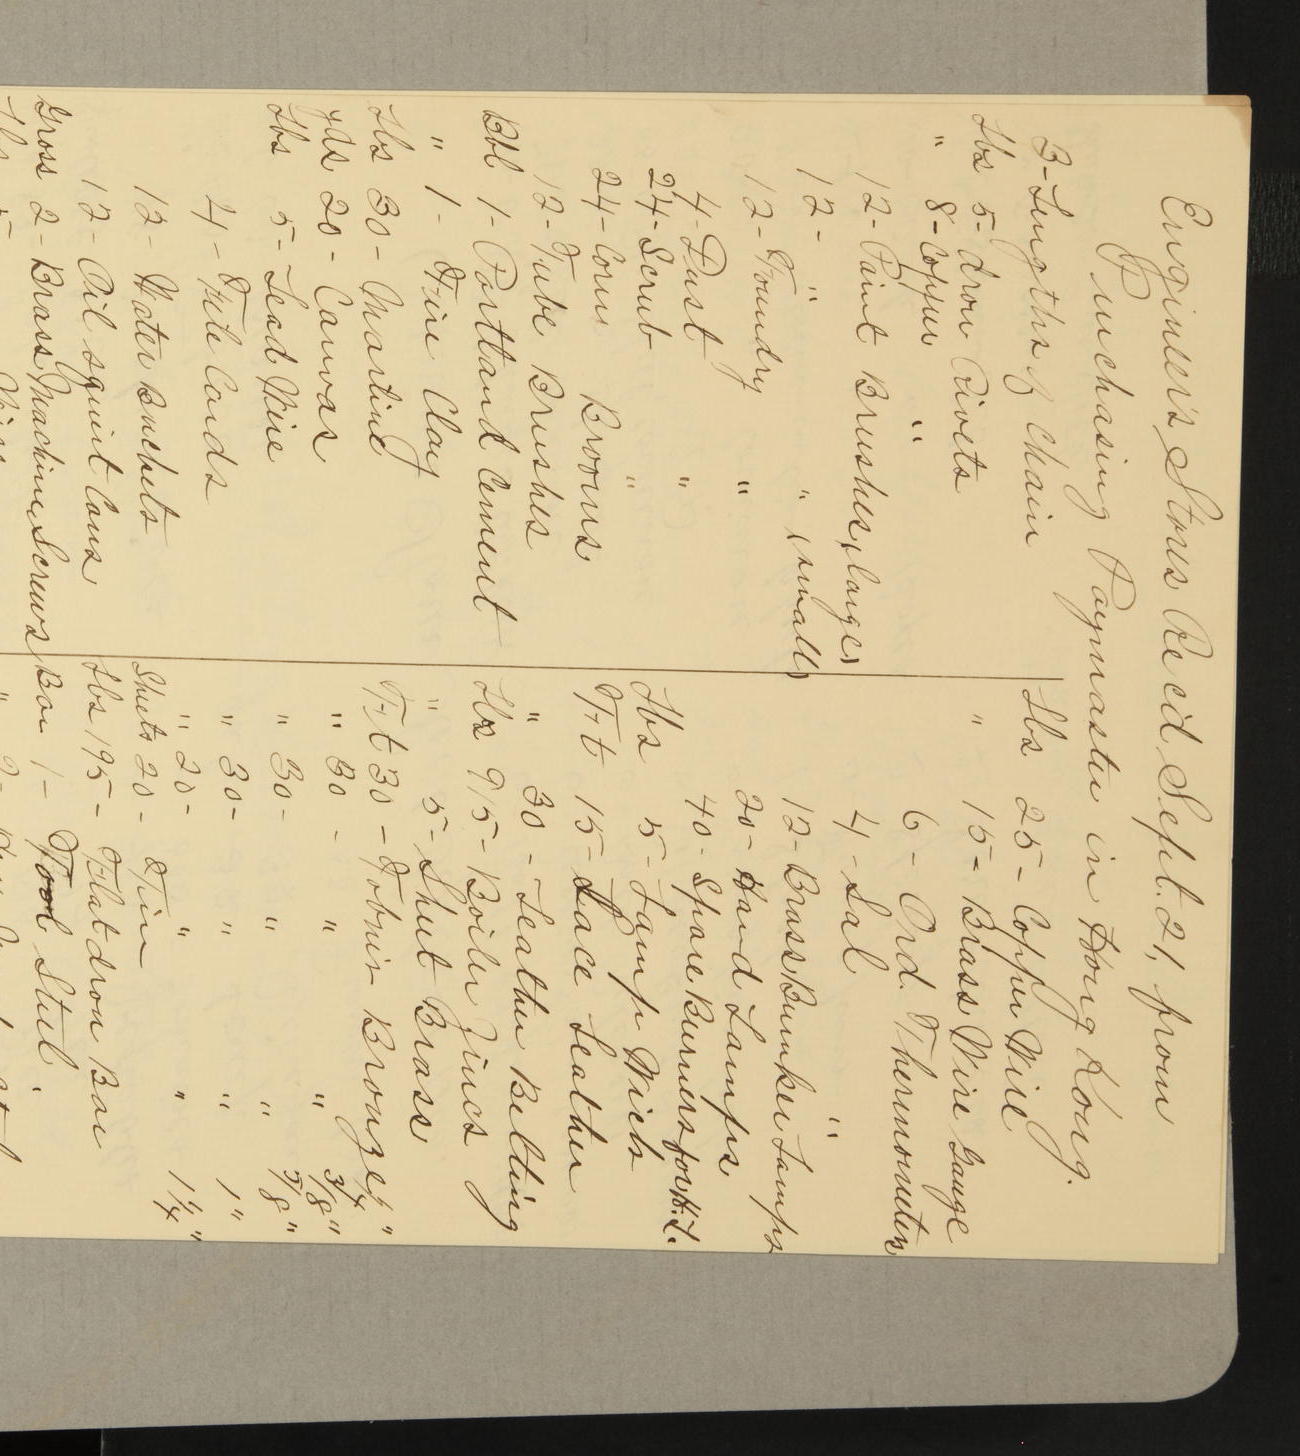 Engineer's Stores Rec'd Sept. 21, from
Purchasing Paymaster in Hong Kong.
3 - Lengths of Chain
Lbs 5 - Iron Rivets
" 8 - Copper "
12 - Paint Brushes (large)
12 - " " (small)
12 - Foundry "
4 - Dust "
24 - Scrub "
24 - Corn Brooms
12 - Tube Brushes
Bbl 1 - Portland Cement
" 1 - Fire Clay
Lbs 30 - Marline
yds 20 - Canvas
Lbs 5 - Lead Wire
4 - File Cards
12 - Water Buckets
12 - Oil squirt Cans
Gross 2 - Brass Machine Screws
Lbs 25 - Copper Wire
" 15 - Brass Wire Gauge
6 - Ord. Thermometers
4 - Sal "
12 - Brass Bunker Lamps
20 - Hand Lamps
40 - Spare Burners for H.L.
Lbs 5 - Lamp Wick
Ft 15 - Lace Leather
" 30 - Leather Belting
Lbs 915 - Boiler Zincs
" 5 - Sheet Brass
Ft 30 - Tobin Bronze 1/4"
" 30 - " " 3/8"
" 30 - " " 5/8"
" 30 - " " 1"
" 20 - " " 1 1/4"
Sheets 20 - Tin
Lbs 195 - Flat Iron Bar
Bar 1 - Tool Steel.